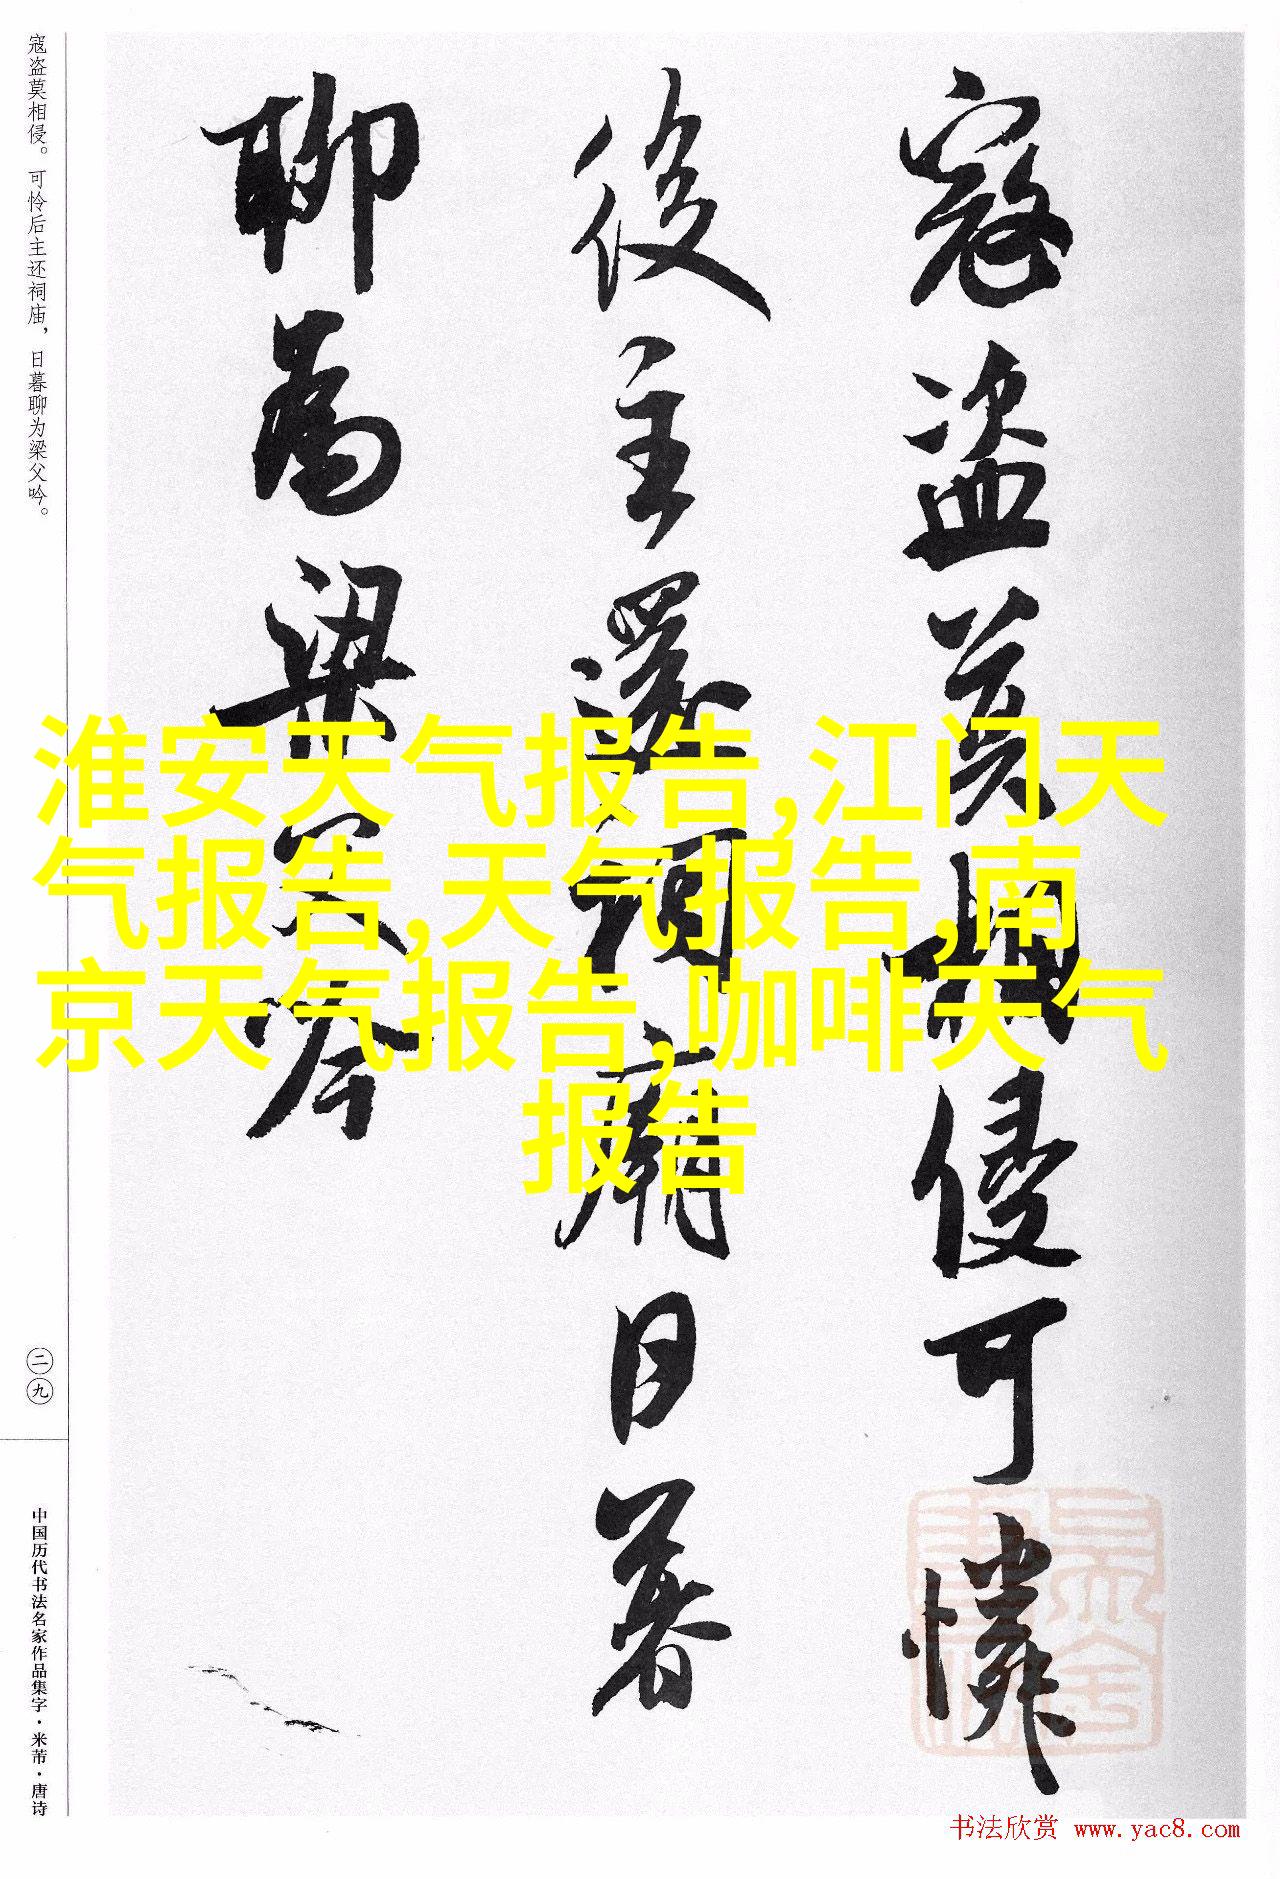 寇盗莫相侵可憐
後主還祠廟日暮
聊為梁父吟
寇盗莫相侵。可怜后主还祠庙，日暮聊为梁父吟。
二九
中国历代书法名家作品集字·米芾·唐诗
淮安天气报告,江门天
气报告,天气报告,南
京天气报告,咖啡天气
报告
书法欣赏 www.yac8.com